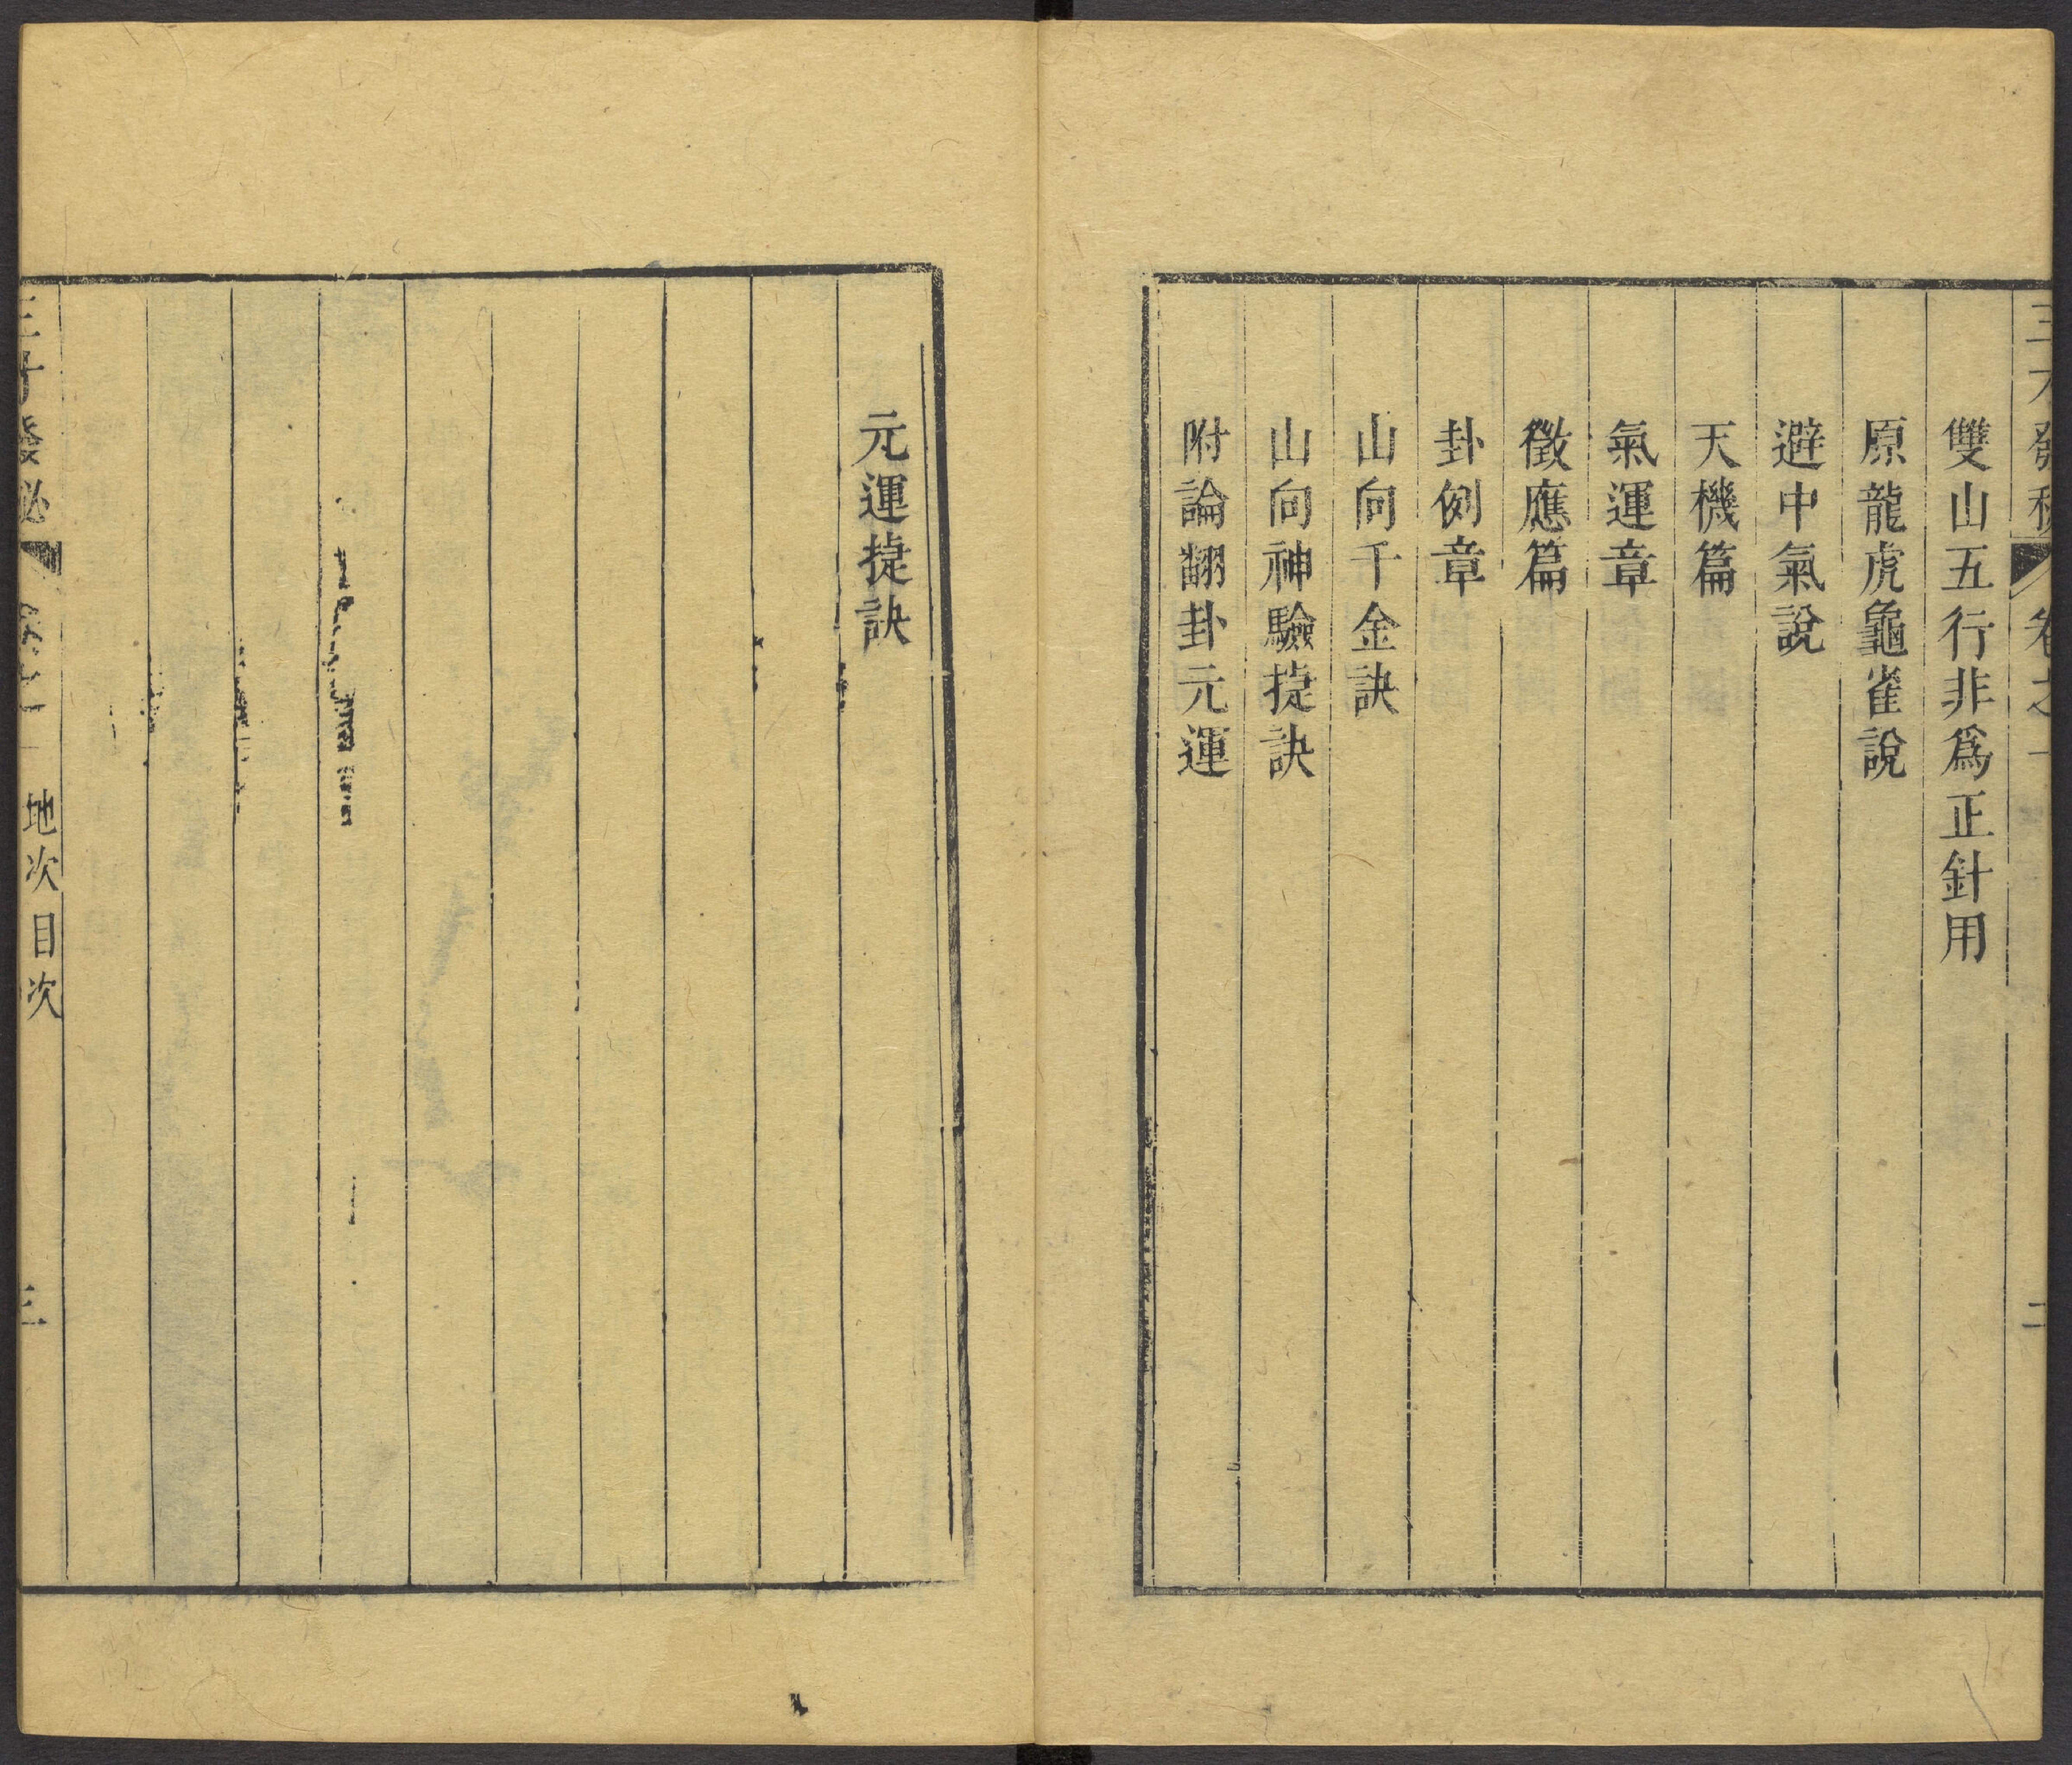 三才發秘 卷之一 二
雙山五行非爲正針用
原龍虎龜雀說
避中氣說
天機篇
氣運章
徵應篇
卦例章
山向千金訣
山向神驗㨗訣
附論翻卦元運
元運㨗訣
三才發秘 卷之一 地次目次 三